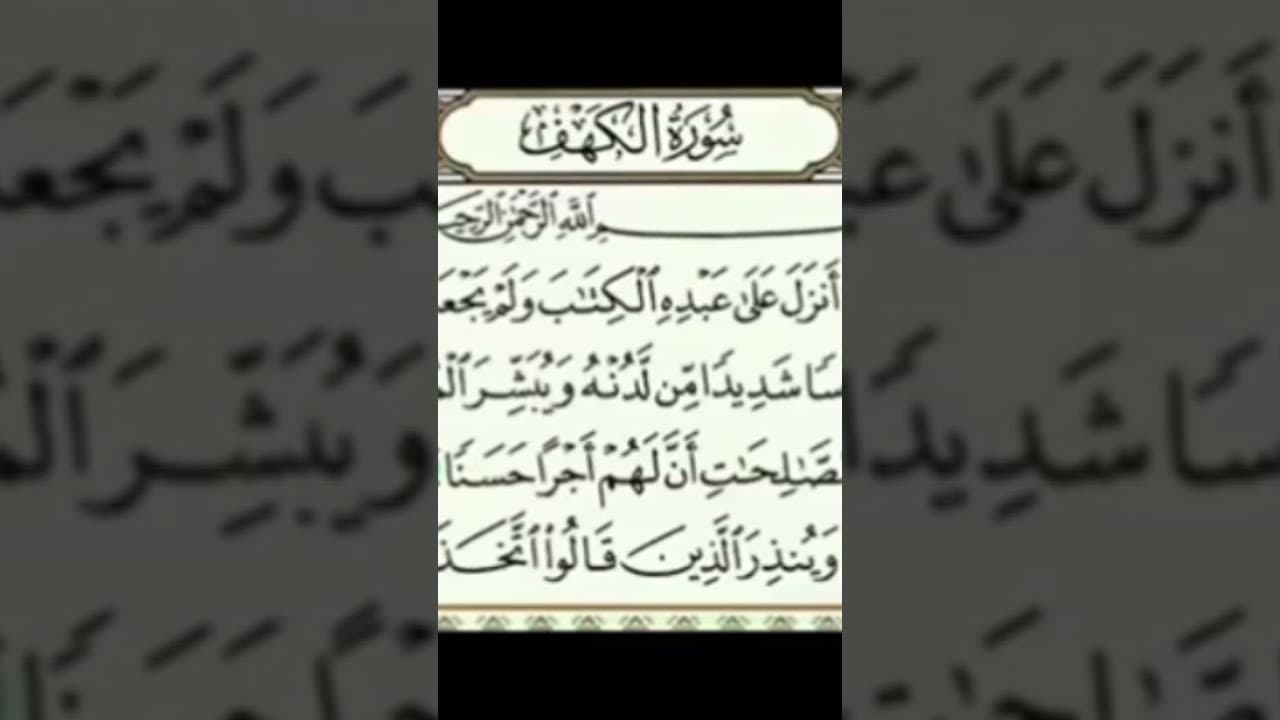 سُورَةُ الكَهْفِ
بِسْمِ ٱللَّهِ ٱلرَّحْمَٰنِ
أَنزَلَ عَلَىٰ عَبْدِهِ ٱلْكِتَٰبَ وَلَمْ يَجْعَ
سًا شَدِيدًا مِّن لَّدُنْهُ وَيُبَشِّرَ ٱلْم
لصَّٰلِحَٰتِ أَنَّ لَهُمْ أَجْرًا حَسَنًا
وَيُنذِرَ ٱلَّذِينَ قَالُوا۟ ٱتَّخَذَ